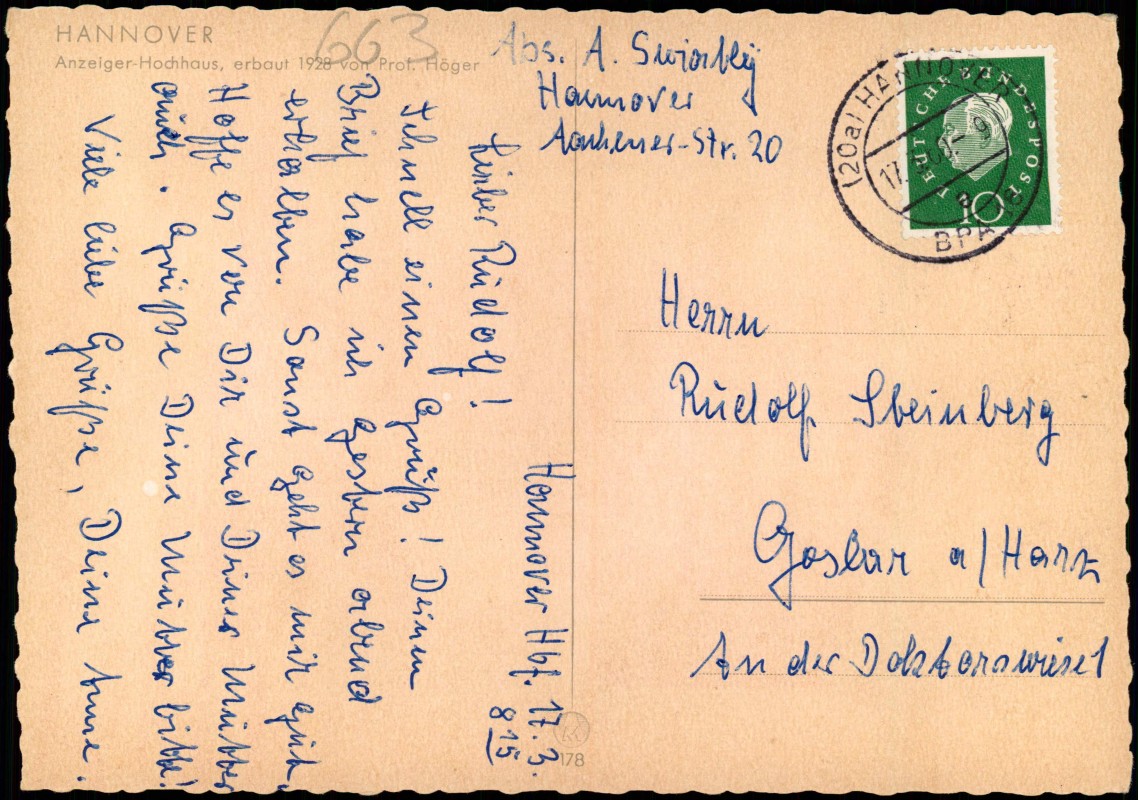 HANNOVER
Anzeiger-Hochhaus, erbaut 1928 von Prof. Höger
663
Abs. A.
Hannover
Aachener-Str. 20
Hannover Hbf. 17. 3.
8 15
Lieber Rudolf!
Schnell einen Gruß! Deinen
Brief habe ich gestern abend
erhalten. Sonst geht es mir gut.
Hoffe es von Dir und Deiner Mutter
auch. Grüße Deine Mutter bitte!
Viele liebe Grüße, Deine Anne.
(20a) HANNOVER
17.
BPA
DEUTSCHE BUNDESPOST
10
Herrn
Rudolf Steinberg
Goslar a/Harz
An der Doktorswiese 1
K
178